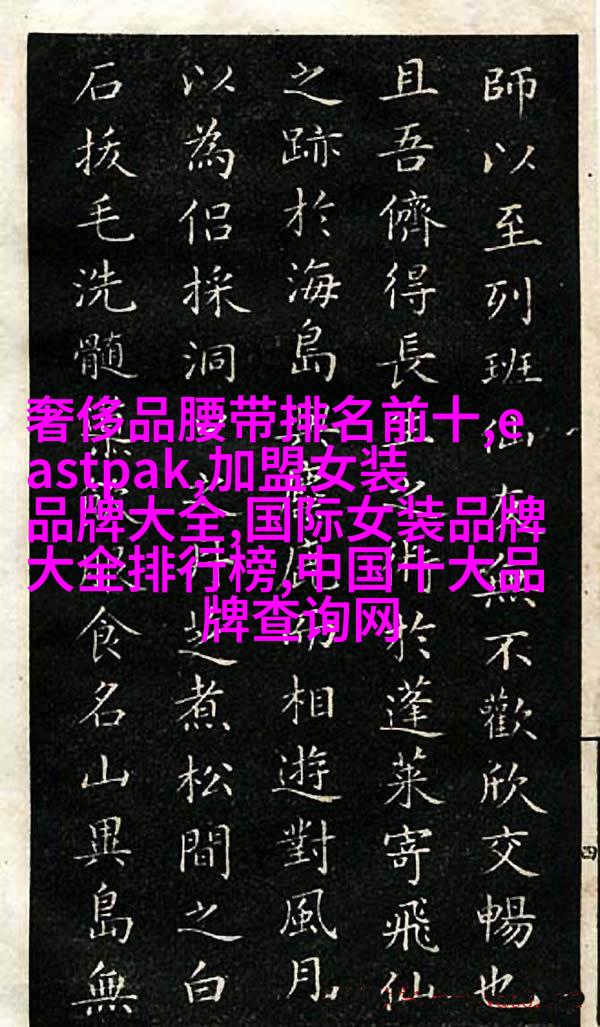 師以至列班仙無不歡欣交暢也
且吾儕得長於蓬萊寄飛仙
之跡於海島相遊對風月
以為侶採洞芝煮松間之白
石拔毛洗髓食名山異島無
奢侈品腰带排名前十,e
astpak,加盟女装
品牌大全,国际女装品牌
大全排行榜,中国十大品
牌查询网
四